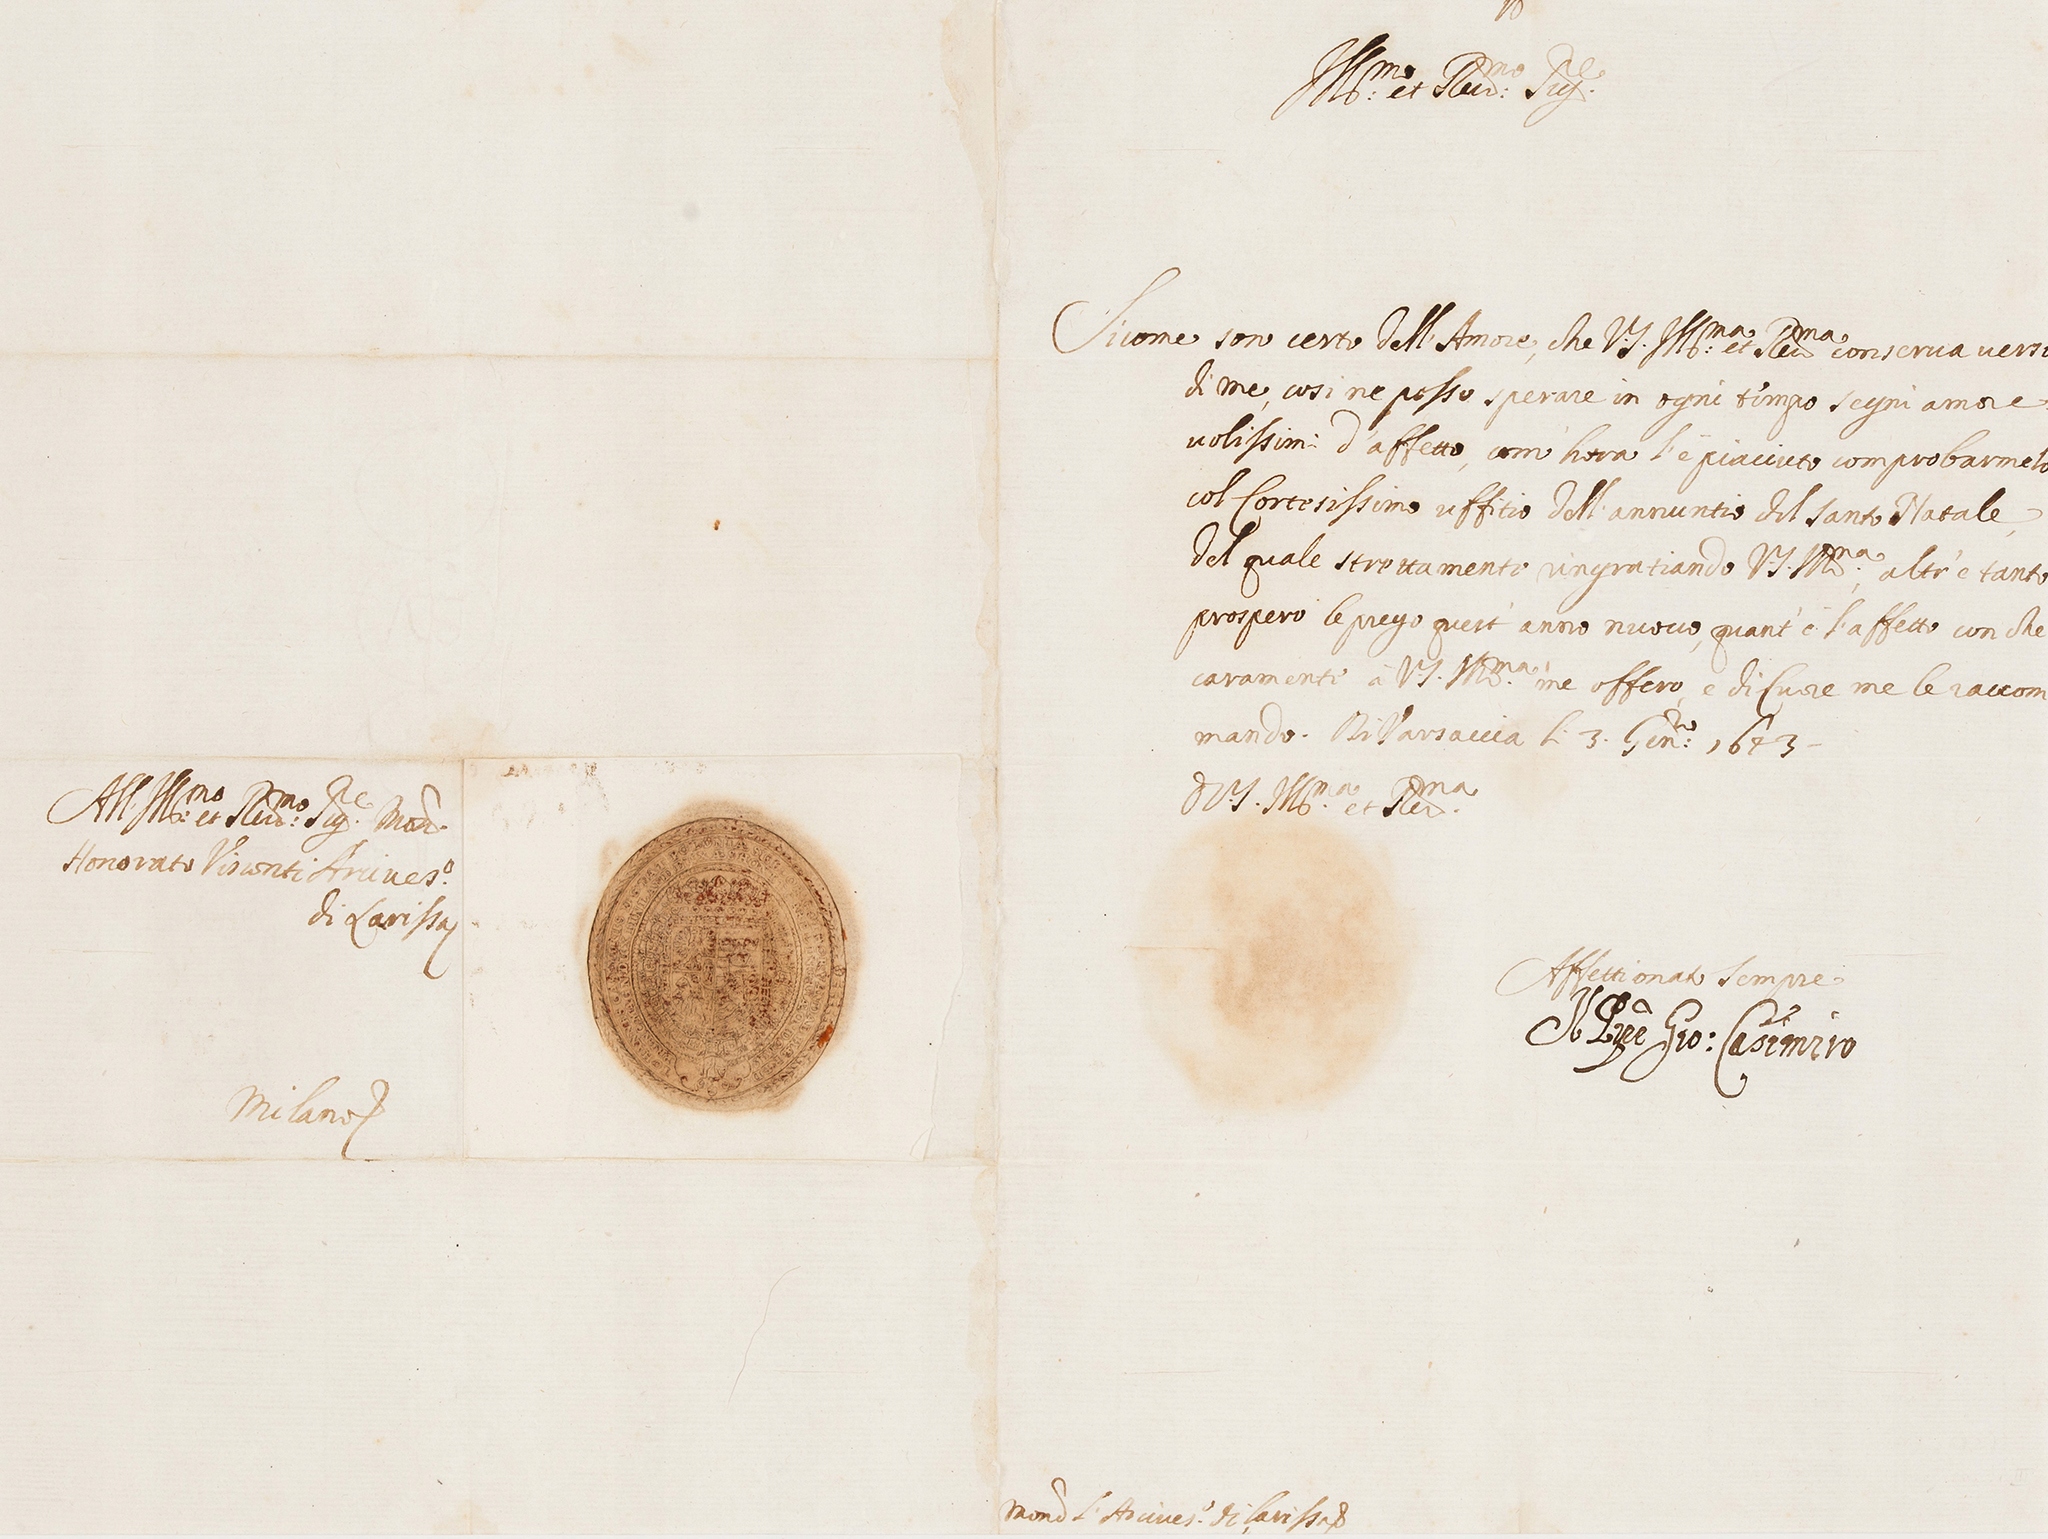 All' Ill:mo et Reu:mo Sig.re Mons.r
Honorato Visconti Arciues.o
di Larissa
Milano
Ill:mo et Reu:mo Sig.re
Sicome son certo dell'Amore, che V.S. Ill:ma et Reu:ma conserua uerso
di me, cosi ne posso sperare in ogni tempo segni amore-
uolissimi d'affetto, com'hora l'è piacciuto comprobarmelo
col Cortesissimo uffitio dell'annuntio del santo Natale,
del quale strettamente ringratiando V.S. Ill:ma, altr'e tanto
prospero le prego quest'anno nuouo, quant'è l'affetto con che
caramente à V.S. Ill:ma me offero, e di Cuore me le raccom
mando. Di Varsauia li 3. Gen:ro 1643-
D V.S. Ill:ma et Reu:ma
Affettionato sempre
Il Pn̄pe Gio: Casimiro
Mons.r l'Arciues.o di Larissa